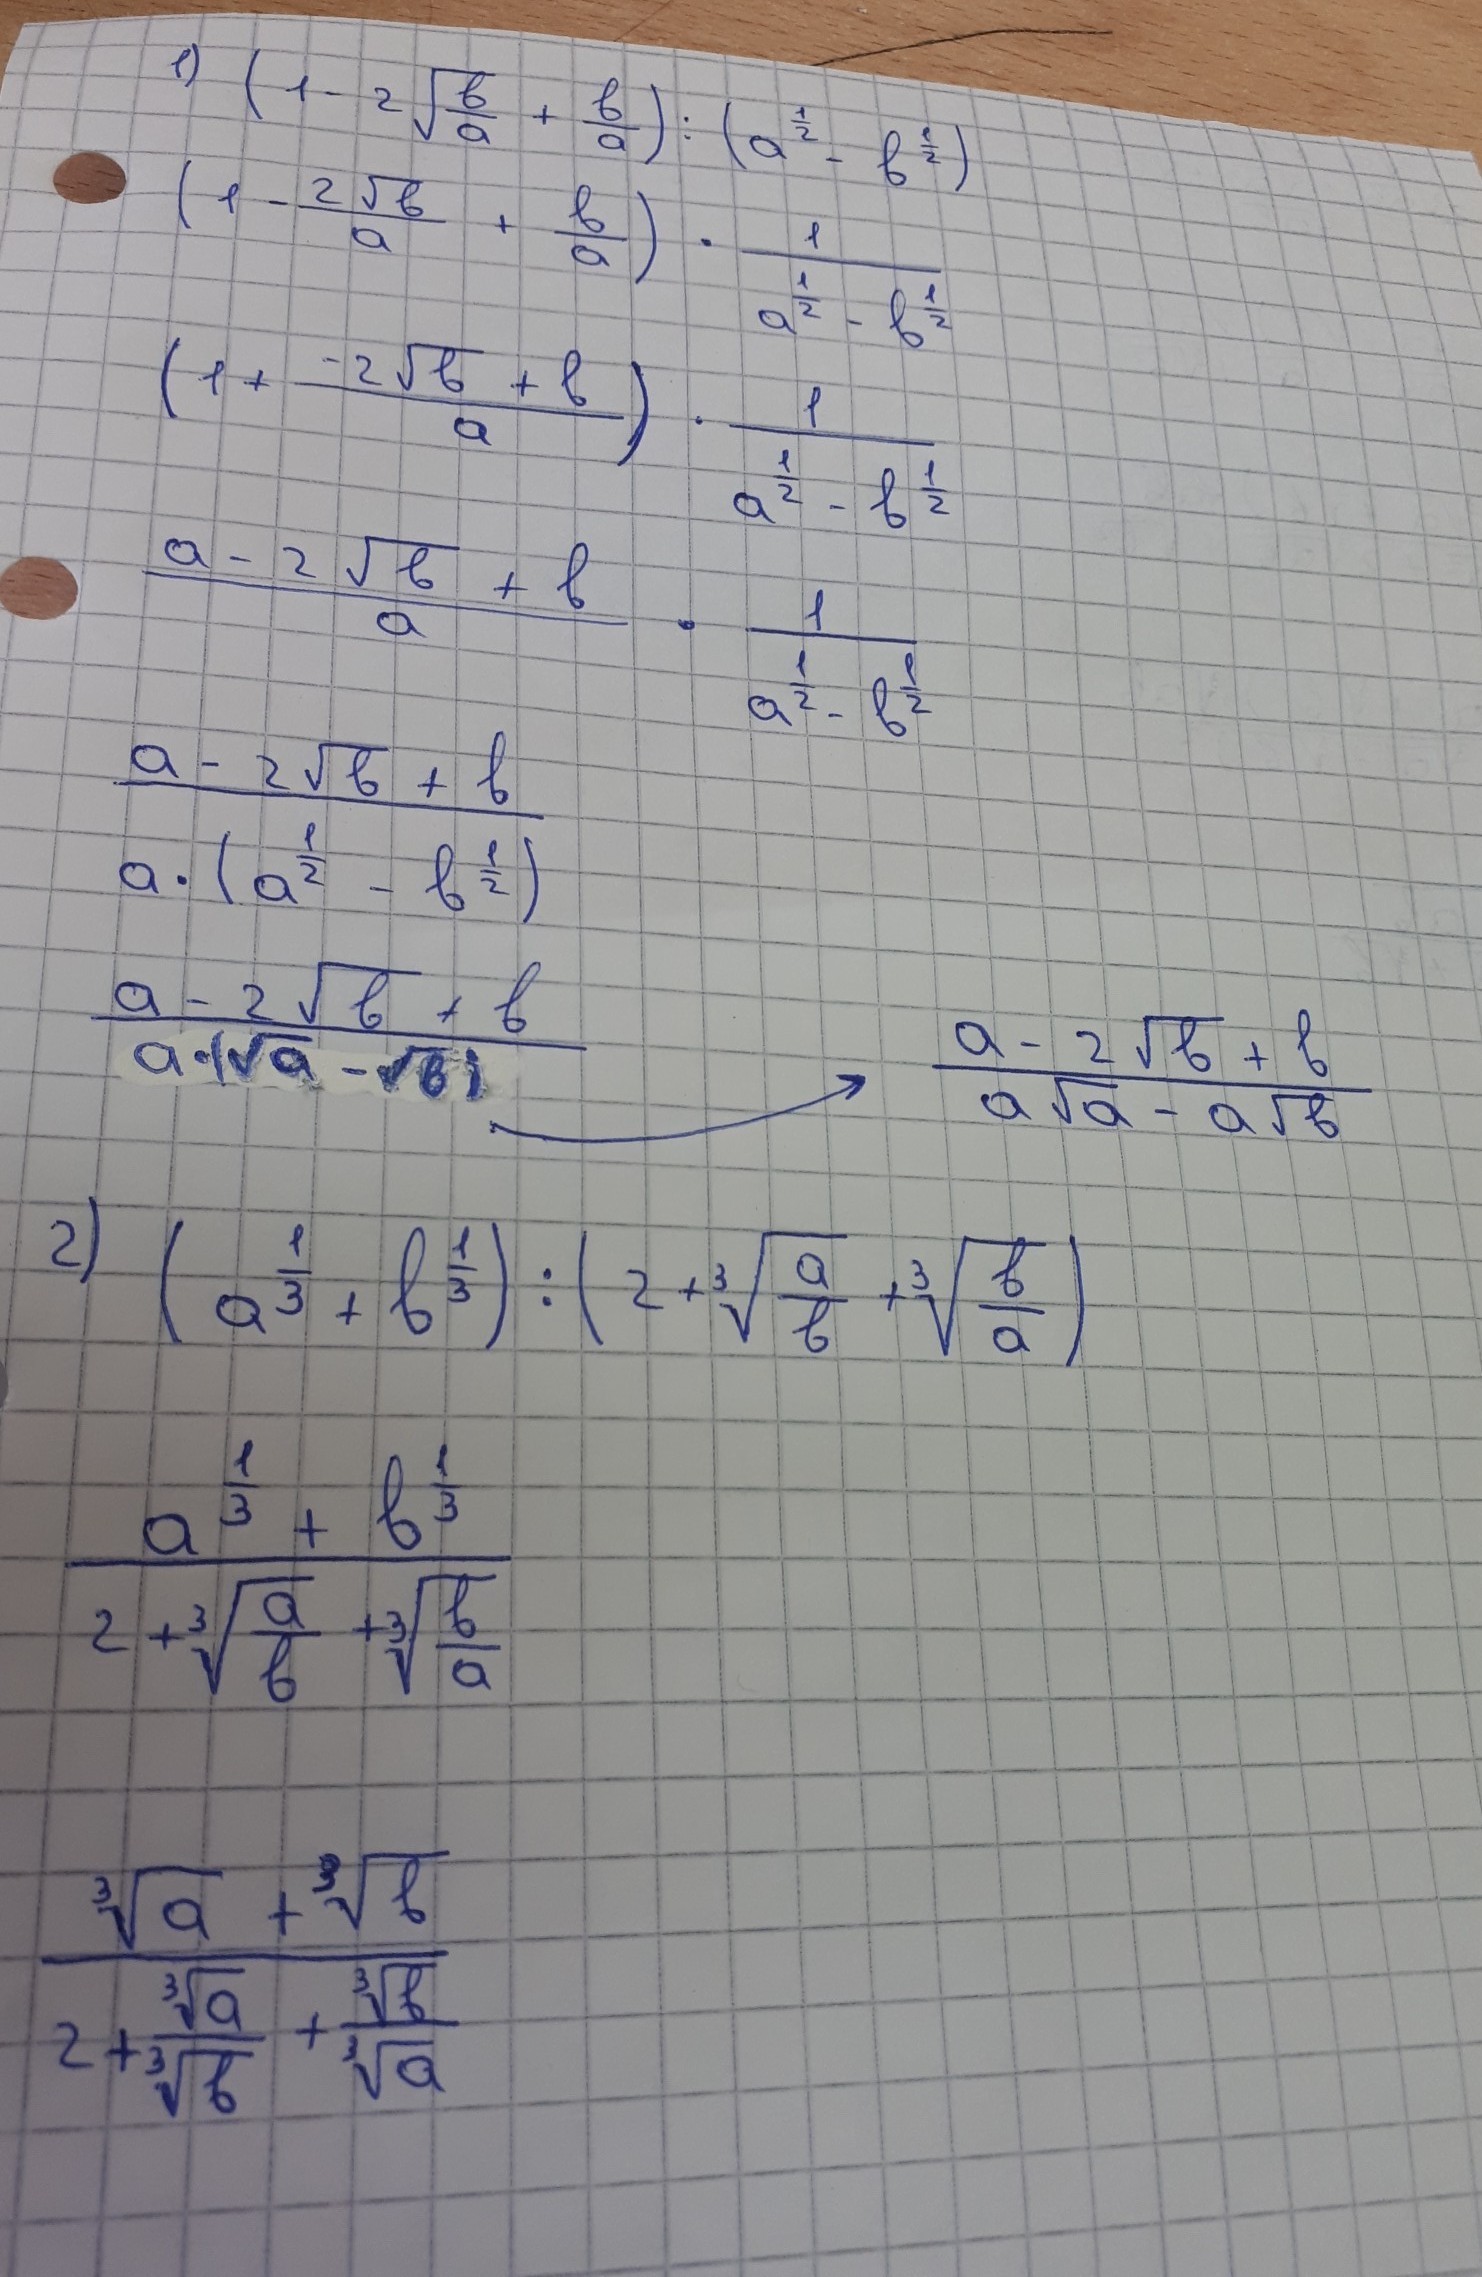 1) (1 - 2√(b/a) + b/a) : (a^(1/2) - b^(1/2))
(1 - 2√b/a + b/a) · 1/(a^(1/2) - b^(1/2))
(1 + (-2√b + b)/a) · 1/(a^(1/2) - b^(1/2))
(a - 2√b + b)/a · 1/(a^(1/2) - b^(1/2))
(a - 2√b + b)/(a·(a^(1/2) - b^(1/2)))
(a - 2√b + b)/(a·(√a - √b)) → (a - 2√b + b)/(a√a - a√b)
2) (a^(1/3) + b^(1/3)) : (2 + ∛(a/b) + ∛(b/a))
(a^(1/3) + b^(1/3))/(2 + ∛(a/b) + ∛(b/a))
(∛a + ∛b)/(2 + ∛a/∛b + ∛b/∛a)